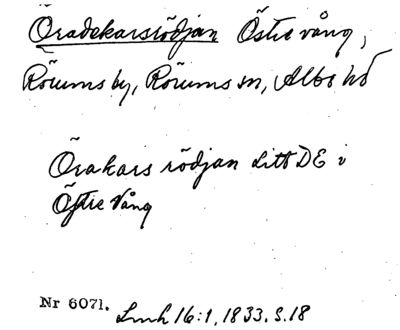 Öradekarsrödjan Östre vång,
Rörums by, Rörums sn, Albo hd
Örakars rödjan Litt DE i
Östre Vång
Nr 6071. Lmh 16:1, 1833. S. 18